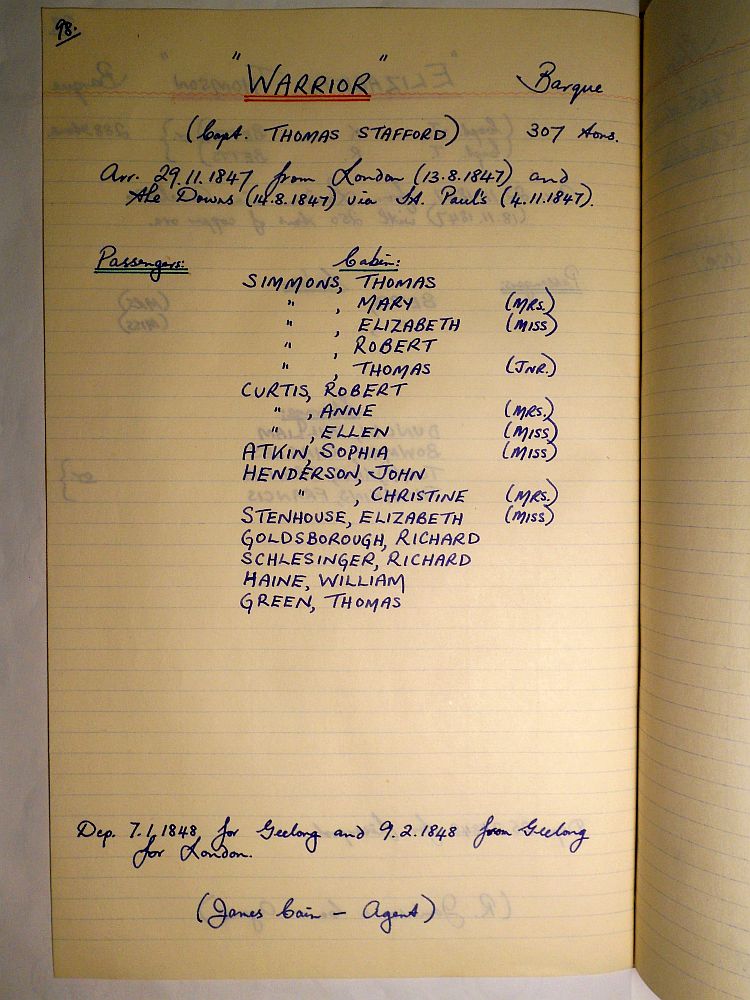 98.
"WARRIOR" Barque
(Capt. THOMAS STAFFORD) 307 tons.
Arr. 29.11.1847 from London (13.8.1847) and
the Downs (14.8.1847) via St. Paul's (4.11.1847).
Passengers: Cabin:
SIMMONS, THOMAS
" , MARY (MRS.)
" , ELIZABETH (MISS)
" , ROBERT
" , THOMAS (JNR.)
CURTIS, ROBERT
" , ANNE (MRS.)
" , ELLEN (MISS)
ATKIN, SOPHIA (MISS)
HENDERSON, JOHN
" , CHRISTINE (MRS.)
STENHOUSE, ELIZABETH (MISS)
GOLDSBOROUGH, RICHARD
SCHLESINGER, RICHARD
HAINE, WILLIAM
GREEN, THOMAS
Dep. 7.1.1848 for Geelong and 9.2.1848 from Geelong
for London.
(James Cain - Agent)